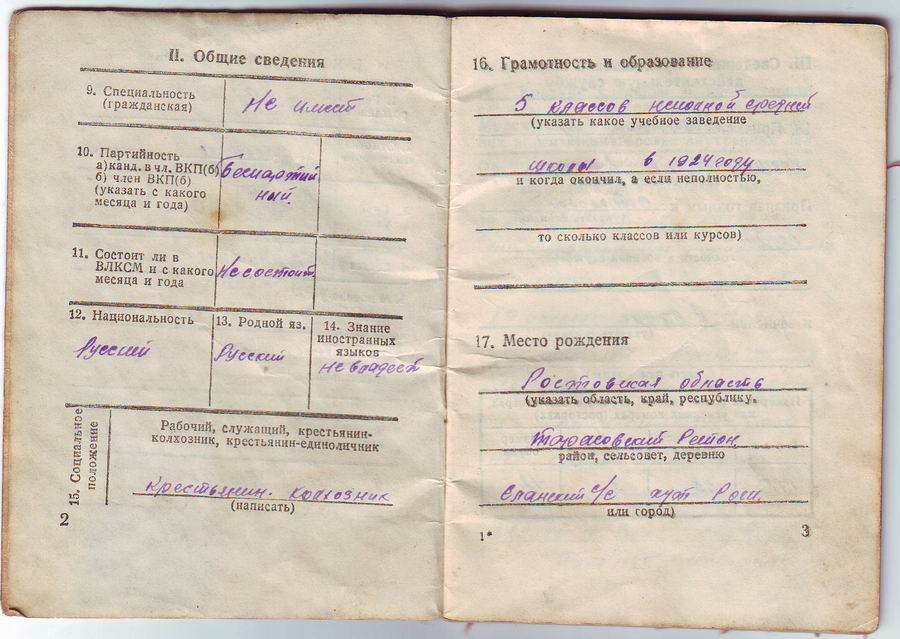 II. Общие сведения
9. Специальность
(гражданская)
Не имеет
10. Партийность
а) канд. в чл. ВКП(б)
б) член ВКП(б)
(указать с какого
месяца и года)
Беспартий
ный.
11. Состоит ли в
ВЛКСМ и с какого
месяца и года
Не состоит.
12. Национальность
Русский
13. Родной яз.
Русский
14. Знание
иностранных
языков
не владеет
15. Социальное
положение
Рабочий, служащий, крестьянин-
колхозник, крестьянин-единоличник
Крестьянин. колхозник
(написать)
2
16. Грамотность и образование
5 классов неполной средней
(указать какое учебное заведение
школы в 1924 году
и когда окончил, а если неполностью,
то сколько классов или курсов)
17. Место рождения
Ростовская область
(указать область, край, республику,
Тарасовский Район
район, сельсовет, деревню
с/с хут
или город)
1*
3